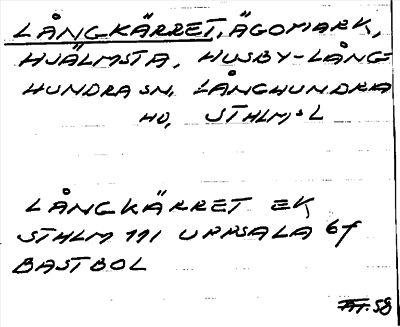 LÅNGKÄRRET, ÄGOMARK,
HJÄLMSTA, HUSBY-LÅNG-
HUNDRA SN, LÅNGHUNDRA
HD, STHLM:S L
LÅNGKÄRRET EK
STHLM 111 UPPSALA 6f
BASTBOL
58